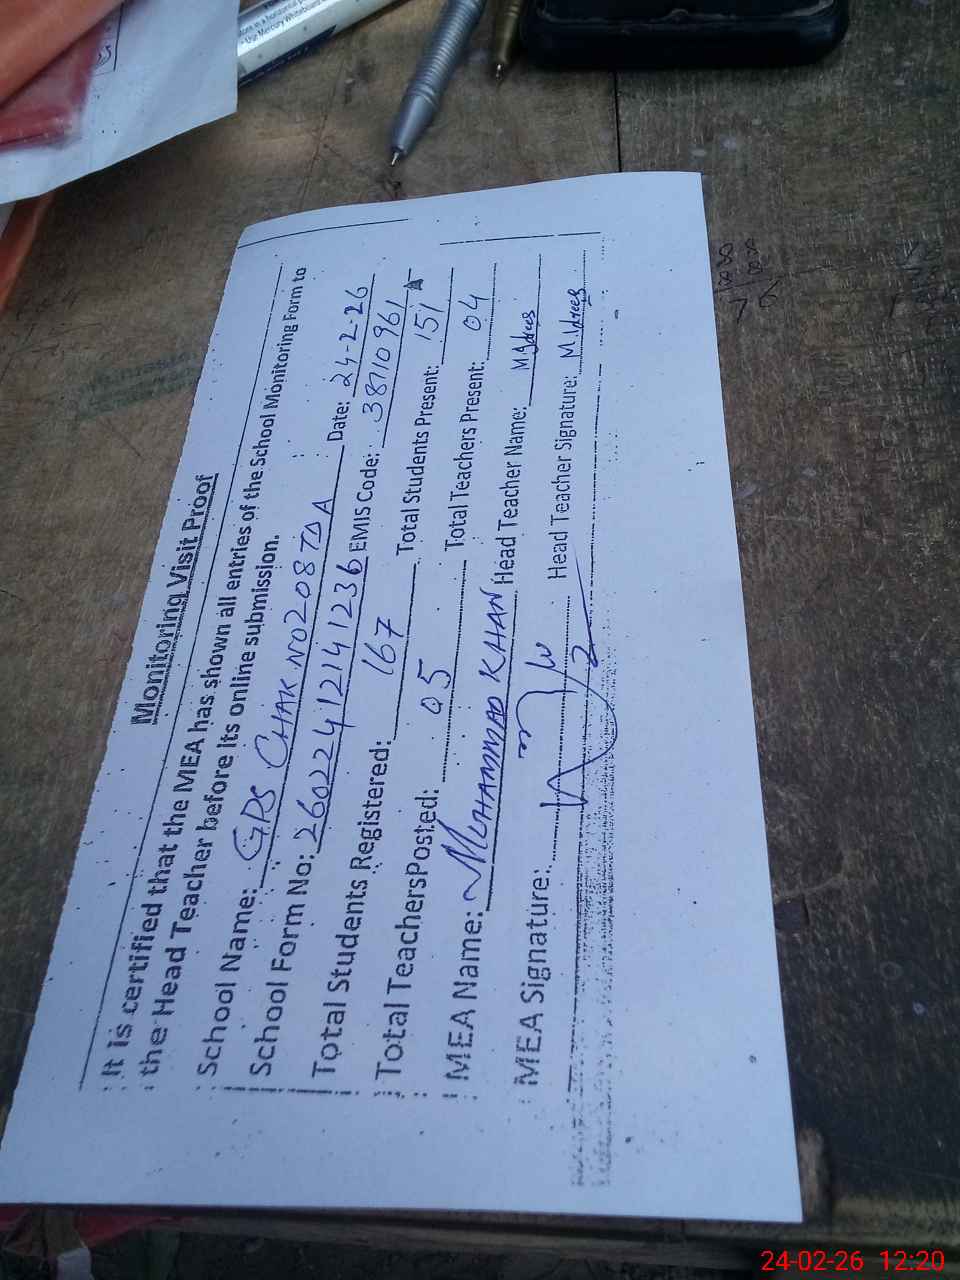 Monitoring Visit Proof
It is certified that the MEA has shown all entries of the School Monitoring Form to
the Head Teacher before its online submission.
School Name: GPS CHAK NO 208 TDA Date: 24-2-26
School Form No: 26022412141236 EMIS Code: 38110961
Total Students Registered: 167 Total Students Present: 151
Total TeachersPosted: 05 Total Teachers Present: 04
MEA Name: MUHAMMAD KHAN Head Teacher Name: M.Idrees
MEA Signature: Head Teacher Signature: M.Idrees
24-02-26 12:20